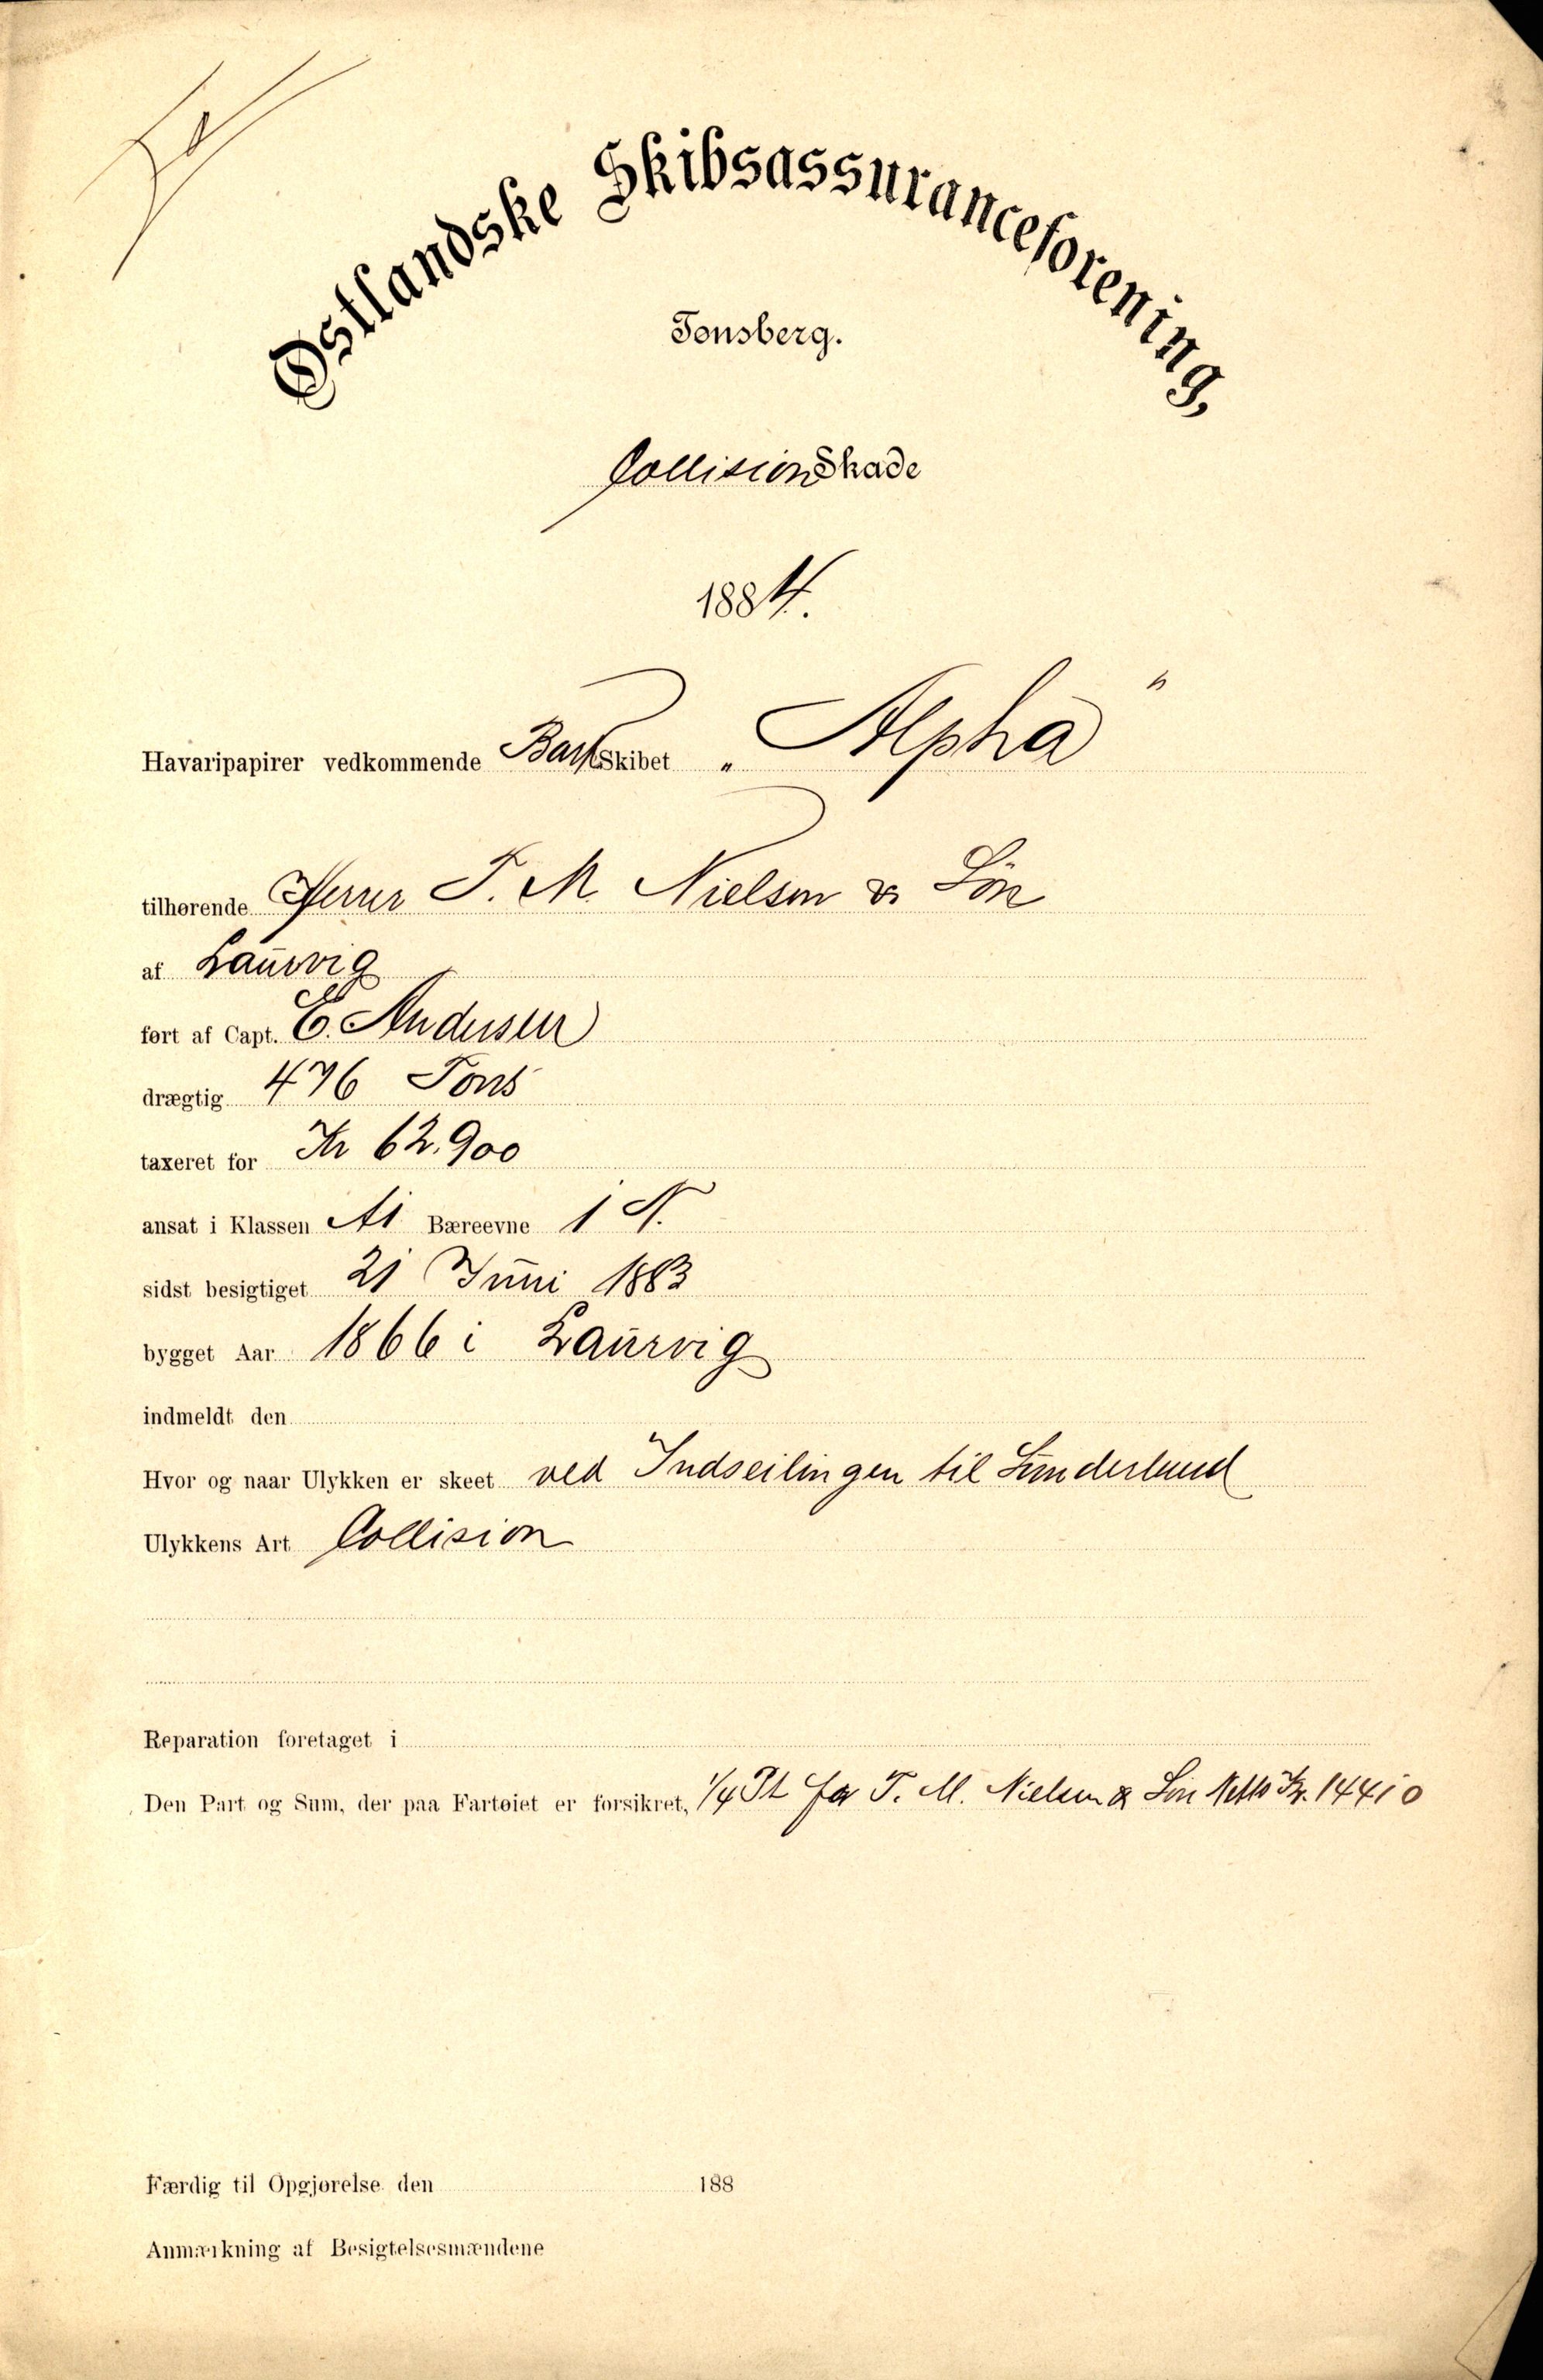 Østlandske Skibsassuranceforening,
Tønsberg.
CollisionsSkade
1884.
Havaripapirer vedkommende BarkSkibet „Alpha"
tilhørende Herrer T. M. Nielsen & Sön
af Laurvig
ført af Capt. E. Andersen
drægtig 476 Tons
taxeret for Kr 62.900
ansat i Klassen A1 Bæreevne 1 N.
sidst besigtiget 21 Juni 1883
bygget Aar 1866 i Laurvig
indmeldt den
Hvor og naar Ulykken er skeet ved Indseilingen til Sunderland
Ulykkens Art Collision
Reparation foretaget i
Den Part og Sum, der paa Fartøiet er forsikret, 1/4 Pt for T. M. Nielsen & Sön Netto Kr. 14410
Færdig til Opgjørelse den 188
Anmærkning af Besigtelsesmændene